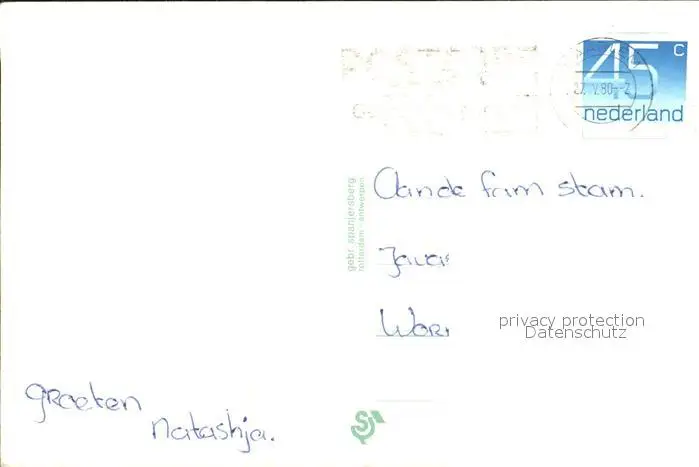 45 c
27. V. 80
nederland
gebr. spanjersberg
rotterdam - antwerpen
Aan de fam stam.
Java
Wor
privacy protection
Datenschutz
groeten
natashja.